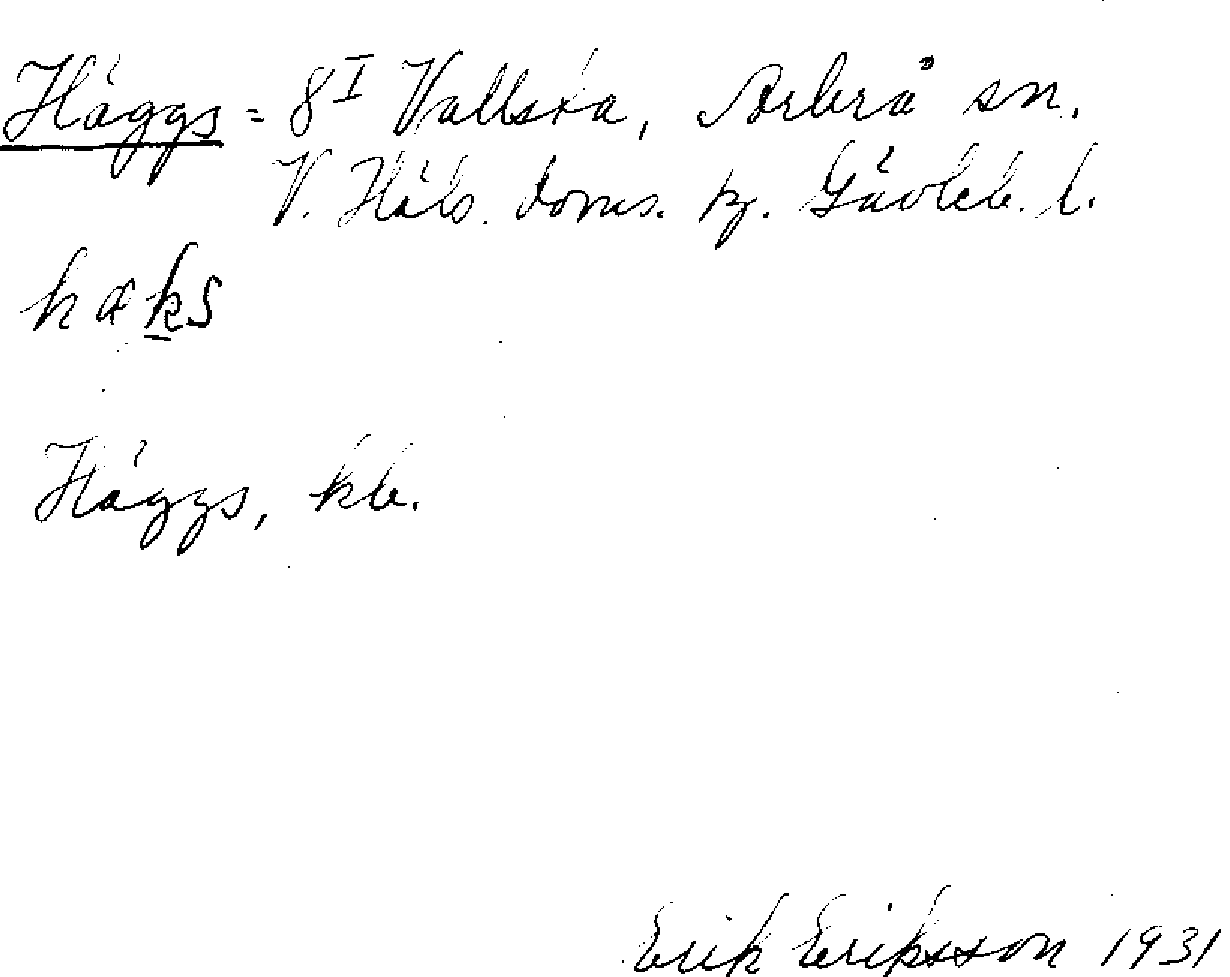 Häggs = 8 I Vallsta, Arbrå sn.
V. Häls. doms. tg. Gävleb. l.
hæks
Häggs, kb.
Erik Eriksson 1931